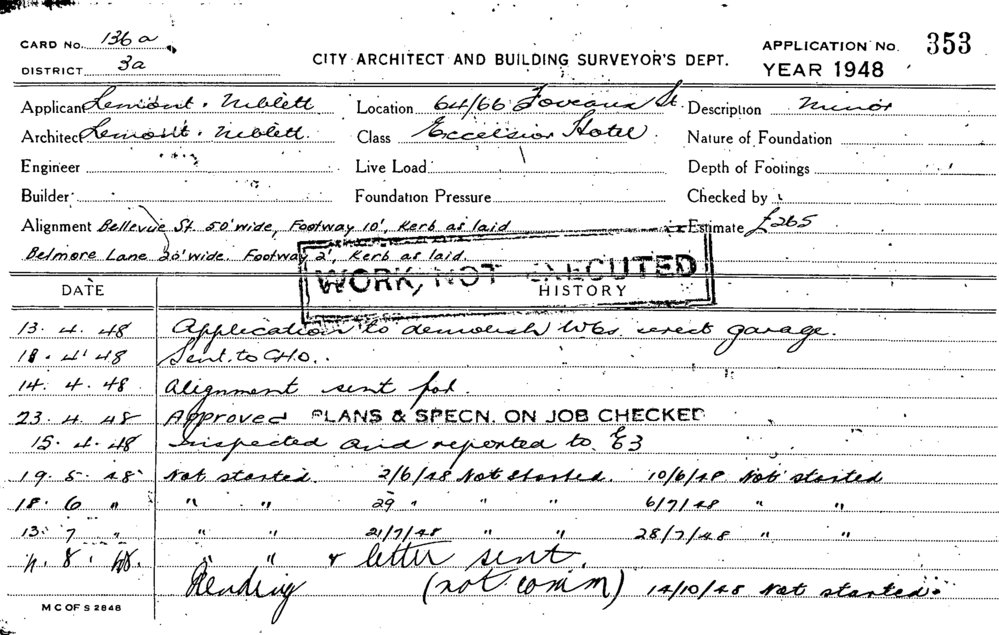 CARD No. 136a
DISTRICT 3a
CITY ARCHITECT AND BUILDING SURVEYOR'S DEPT.
APPLICATION No. 353
YEAR 1948
Applicant Lemont & Niblett Location 64/66 Foveaux St. Description Minor
Architect Lemont & Niblett Class Excelsior Hotel Nature of Foundation
Engineer Live Load Depth of Footings
Builder Foundation Pressure Checked by
Alignment Bellevue St. 50' wide, Footway 10', Kerb as laid Estimate £265
Belmore Lane 20' wide. Footway 2', Kerb as laid.
WORK, NOT EXECUTED
DATE HISTORY
13. 4. 48 Application to demolish WCs erect garage.
4. 48 Sent to CHO.
14. 4. 48 Alignment sent for.
23. 4. 48 Approved PLANS & SPECN. ON JOB CHECKED
15. 4. 48 Inspected and reported to E3
19. 5. 48 Not started. 2/6/48 Not started. 10/6/48 Not started
18. 6 " " " 29 " " " 6/7/48 " "
13. 7 " " " 21/7/48 " " 28/7/48 " "
8. 48. " " & letter sent.
Pending (not comm) 14/10/48 Not started.
M C OF S 2848